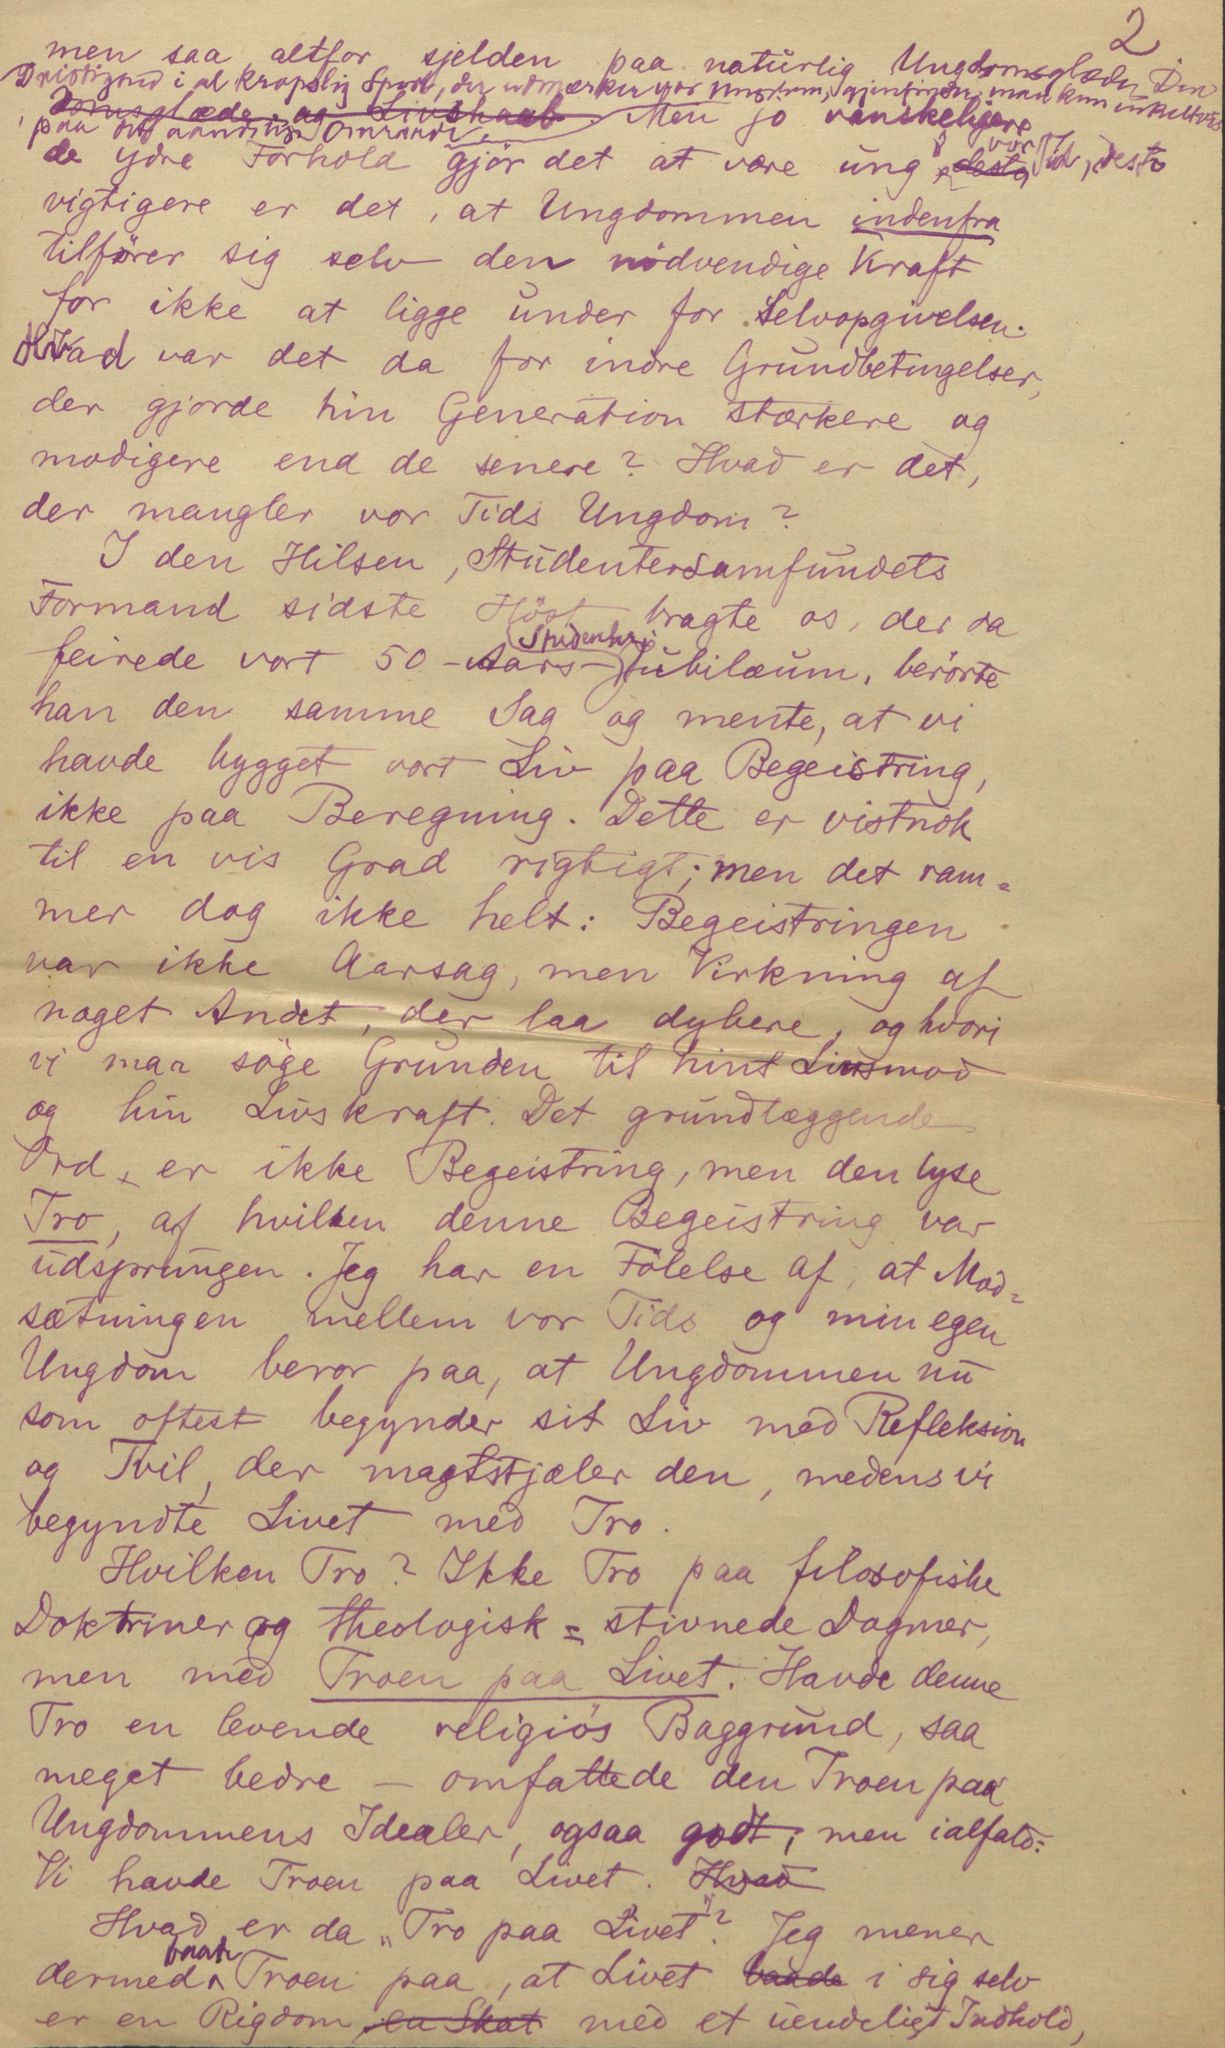 2
men saa altfor sjelden paa naturlig Ungdomsglæde. Den
Dristighed i al kropslig Sport, der udmærker vor Ungdom, gjenfinder man kun enkeltvis
paa det aandelige Omraade.
Livsglæde og Livshaab. Men jo vanskeligere
de ydre Forhold gjör det at være ung i vor Tid, desto
vigtigere er det, at Ungdommen indenfra
tilförer sig selv den nödvendige Kraft
for ikke at ligge under for Selvopgivelsen.
Hvad var det da for indre Grundbetingelser,
der gjorde hin Generation stærkere og
modigere end de senere? Hvad er det,
der mangler vor Tids Ungdom?
I den Hilsen, Studentersamfundets
Formand sidste Höst bragte os, der da
feirede vort 50-Aars-Studenterjubilæum, berörte
han den samme Sag og mente, at vi
havde bygget vort Liv paa Begeistring,
ikke paa Beregning. Dette er vistnok
til en vis Grad rigtigt; men det ram=
mer dog ikke helt: Begeistringen
var ikke Aarsag, men Virkning af
noget Andet, der laa dybere, og hvori
vi maa söge Grunden til hint Livsmod
og hin Livskraft. Det grundlæggende
Ord er ikke Begeistring, men den lyse
Tro, af hvilken denne Begeistring var
udsprungen. Jeg har en Fölelse af, at Mod=
sætningen mellem vor Tids og min egen
Ungdom beror paa, at Ungdommen nu
som oftest begynder sit Liv med Refleksion
og Tvil, der magtstjæler den, medens vi
begyndte Livet med Tro.
Hvilken Tro? Ikke Tro paa filosofiske
Doktriner og theologisk=stivnede Dogmer,
men med Troen paa Livet. Havde denne
Tro en levende religiös Baggrund, saa
meget bedre – omfattede den Troen paa
Ungdommens Idealer, ogsaa godt; men ialfald:
Vi havde Troen paa Livet. Hvad
Hvad er da „Tro paa Livet"? Jeg mener
dermed baade Troen paa, at Livet baade i sig selv
er en Rigdom, en Skat med et uendeligt Indhold,